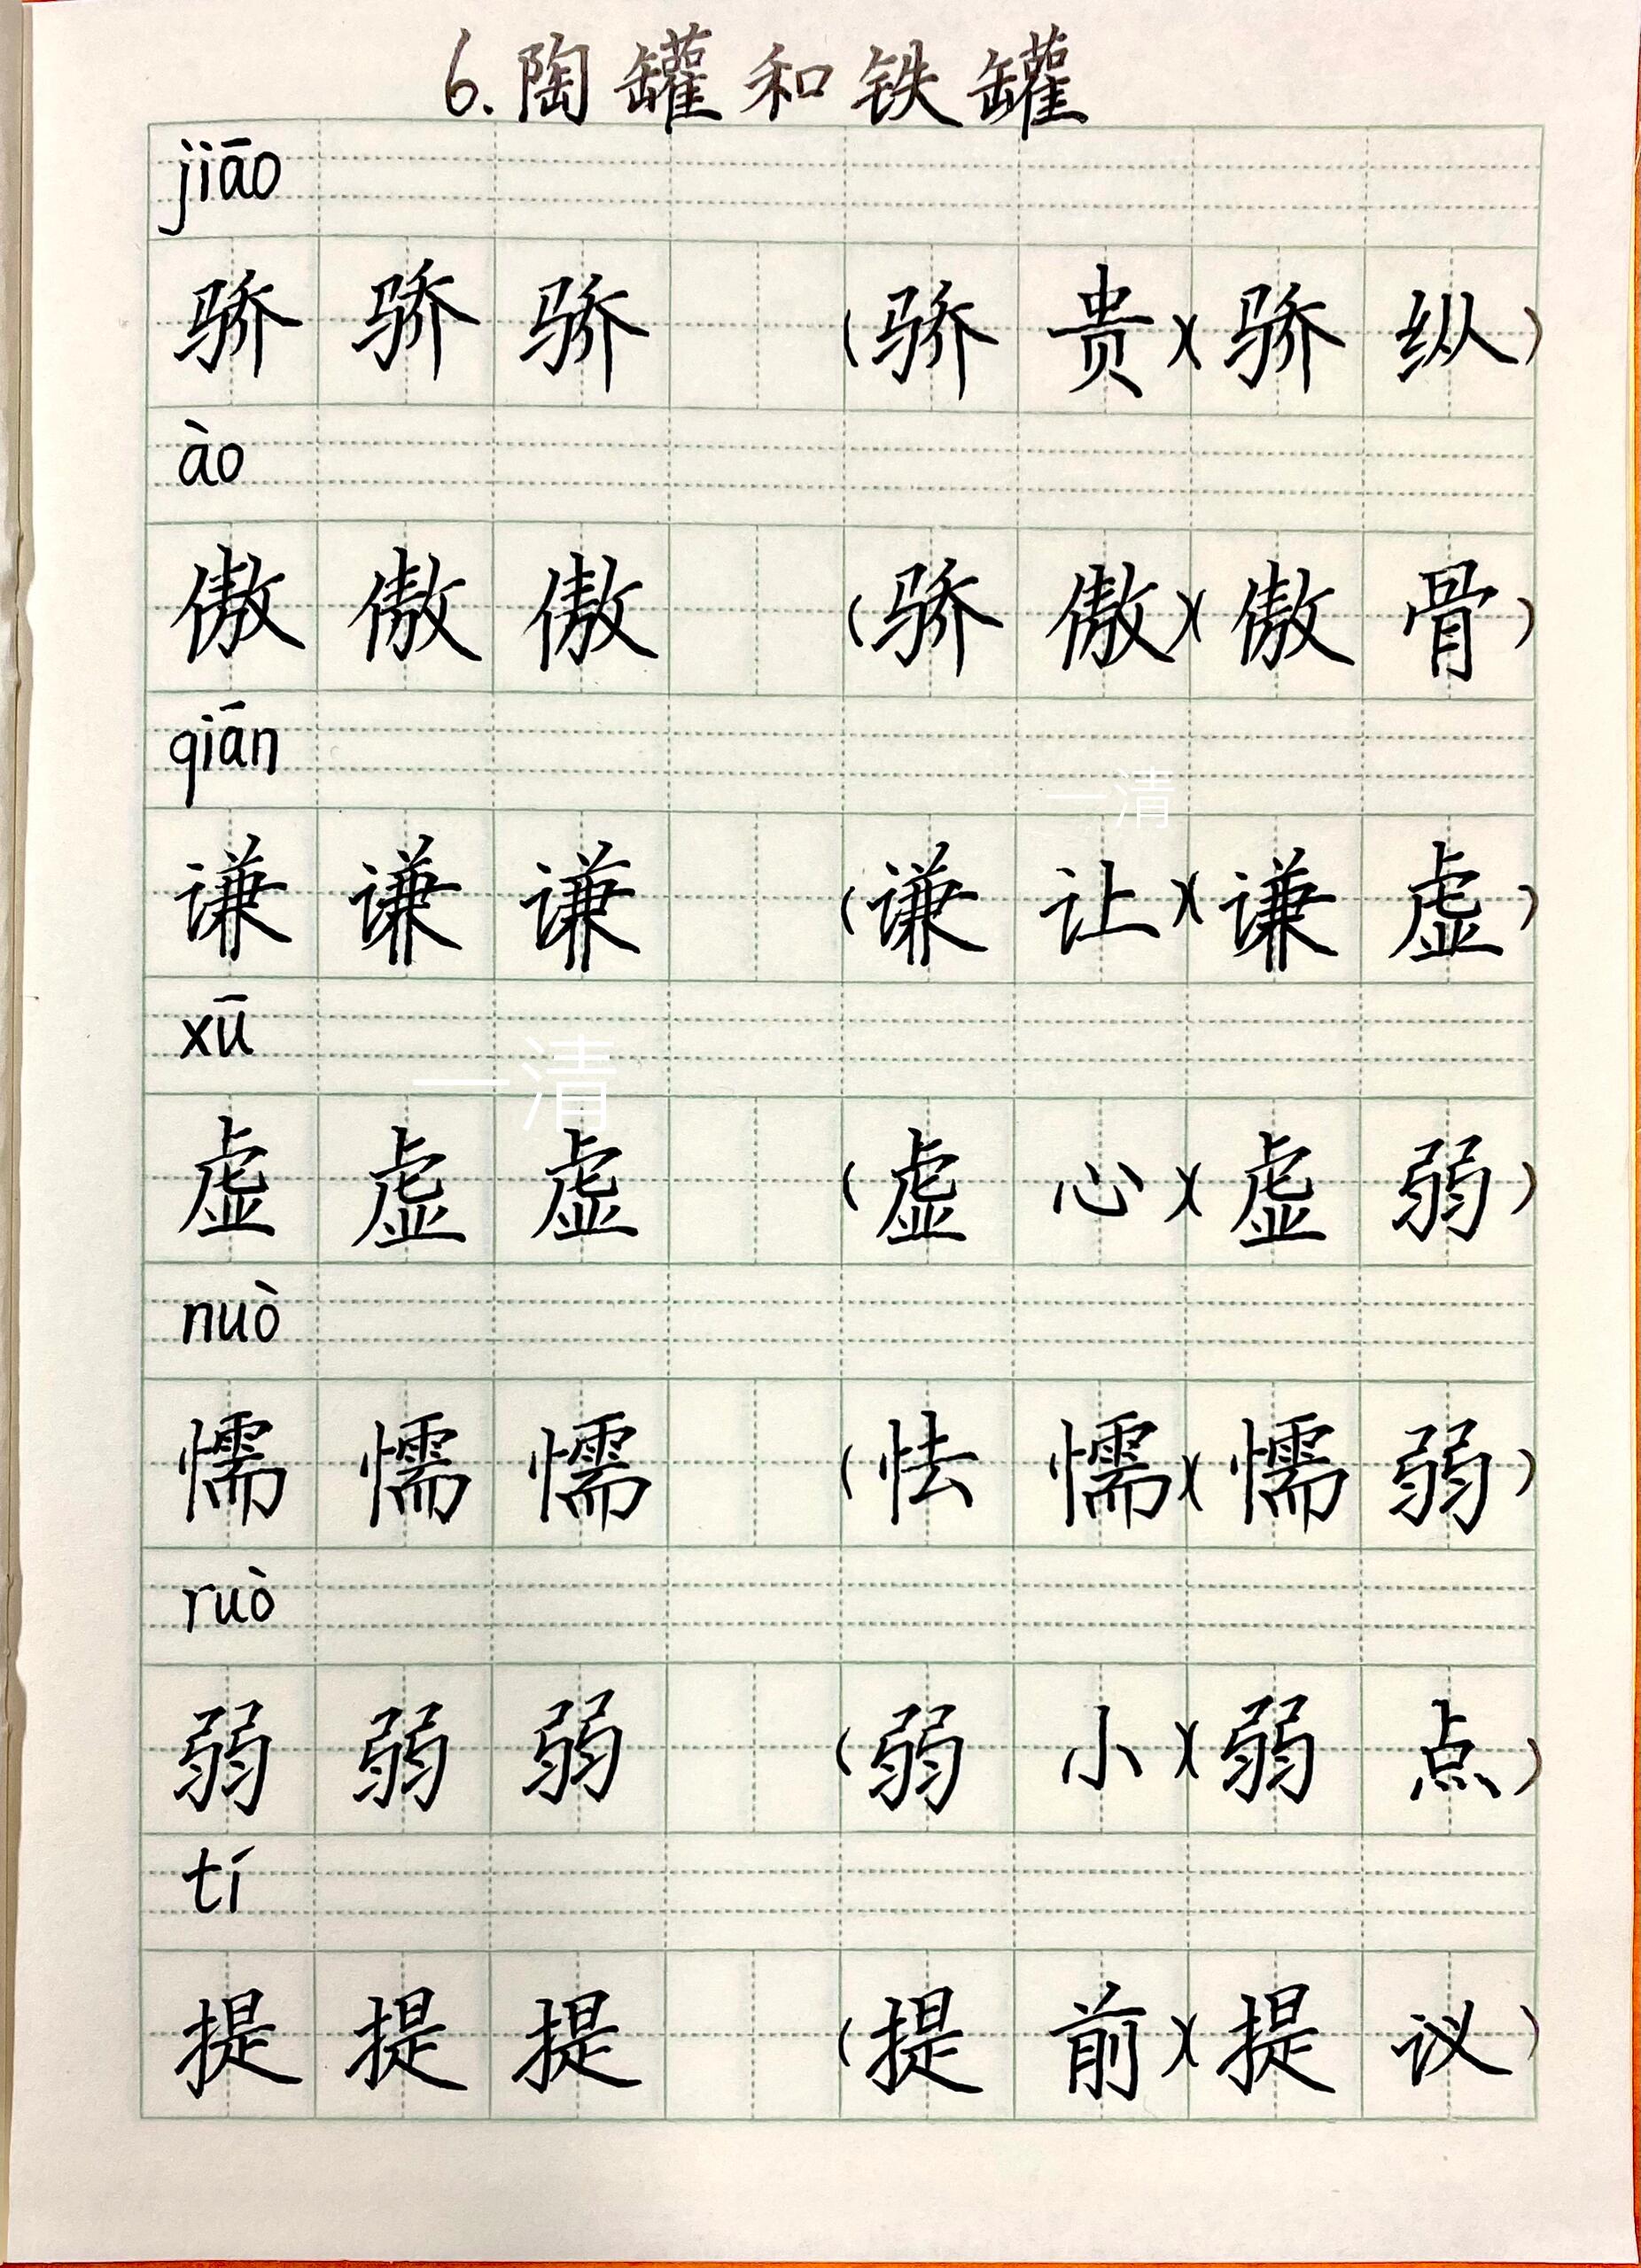 6.陶罐和铁罐
jiāo
骄骄骄(骄贵)(骄纵)
ào
傲傲傲(骄傲)(傲骨)
qiān
一清
谦谦谦(谦让)(谦虚)
xū
一清
虚虚虚(虚心)(虚弱)
nuò
懦懦懦(怯懦)(懦弱)
ruò
弱弱弱(弱小)(弱点)
tí
提提提(提前)(提议)